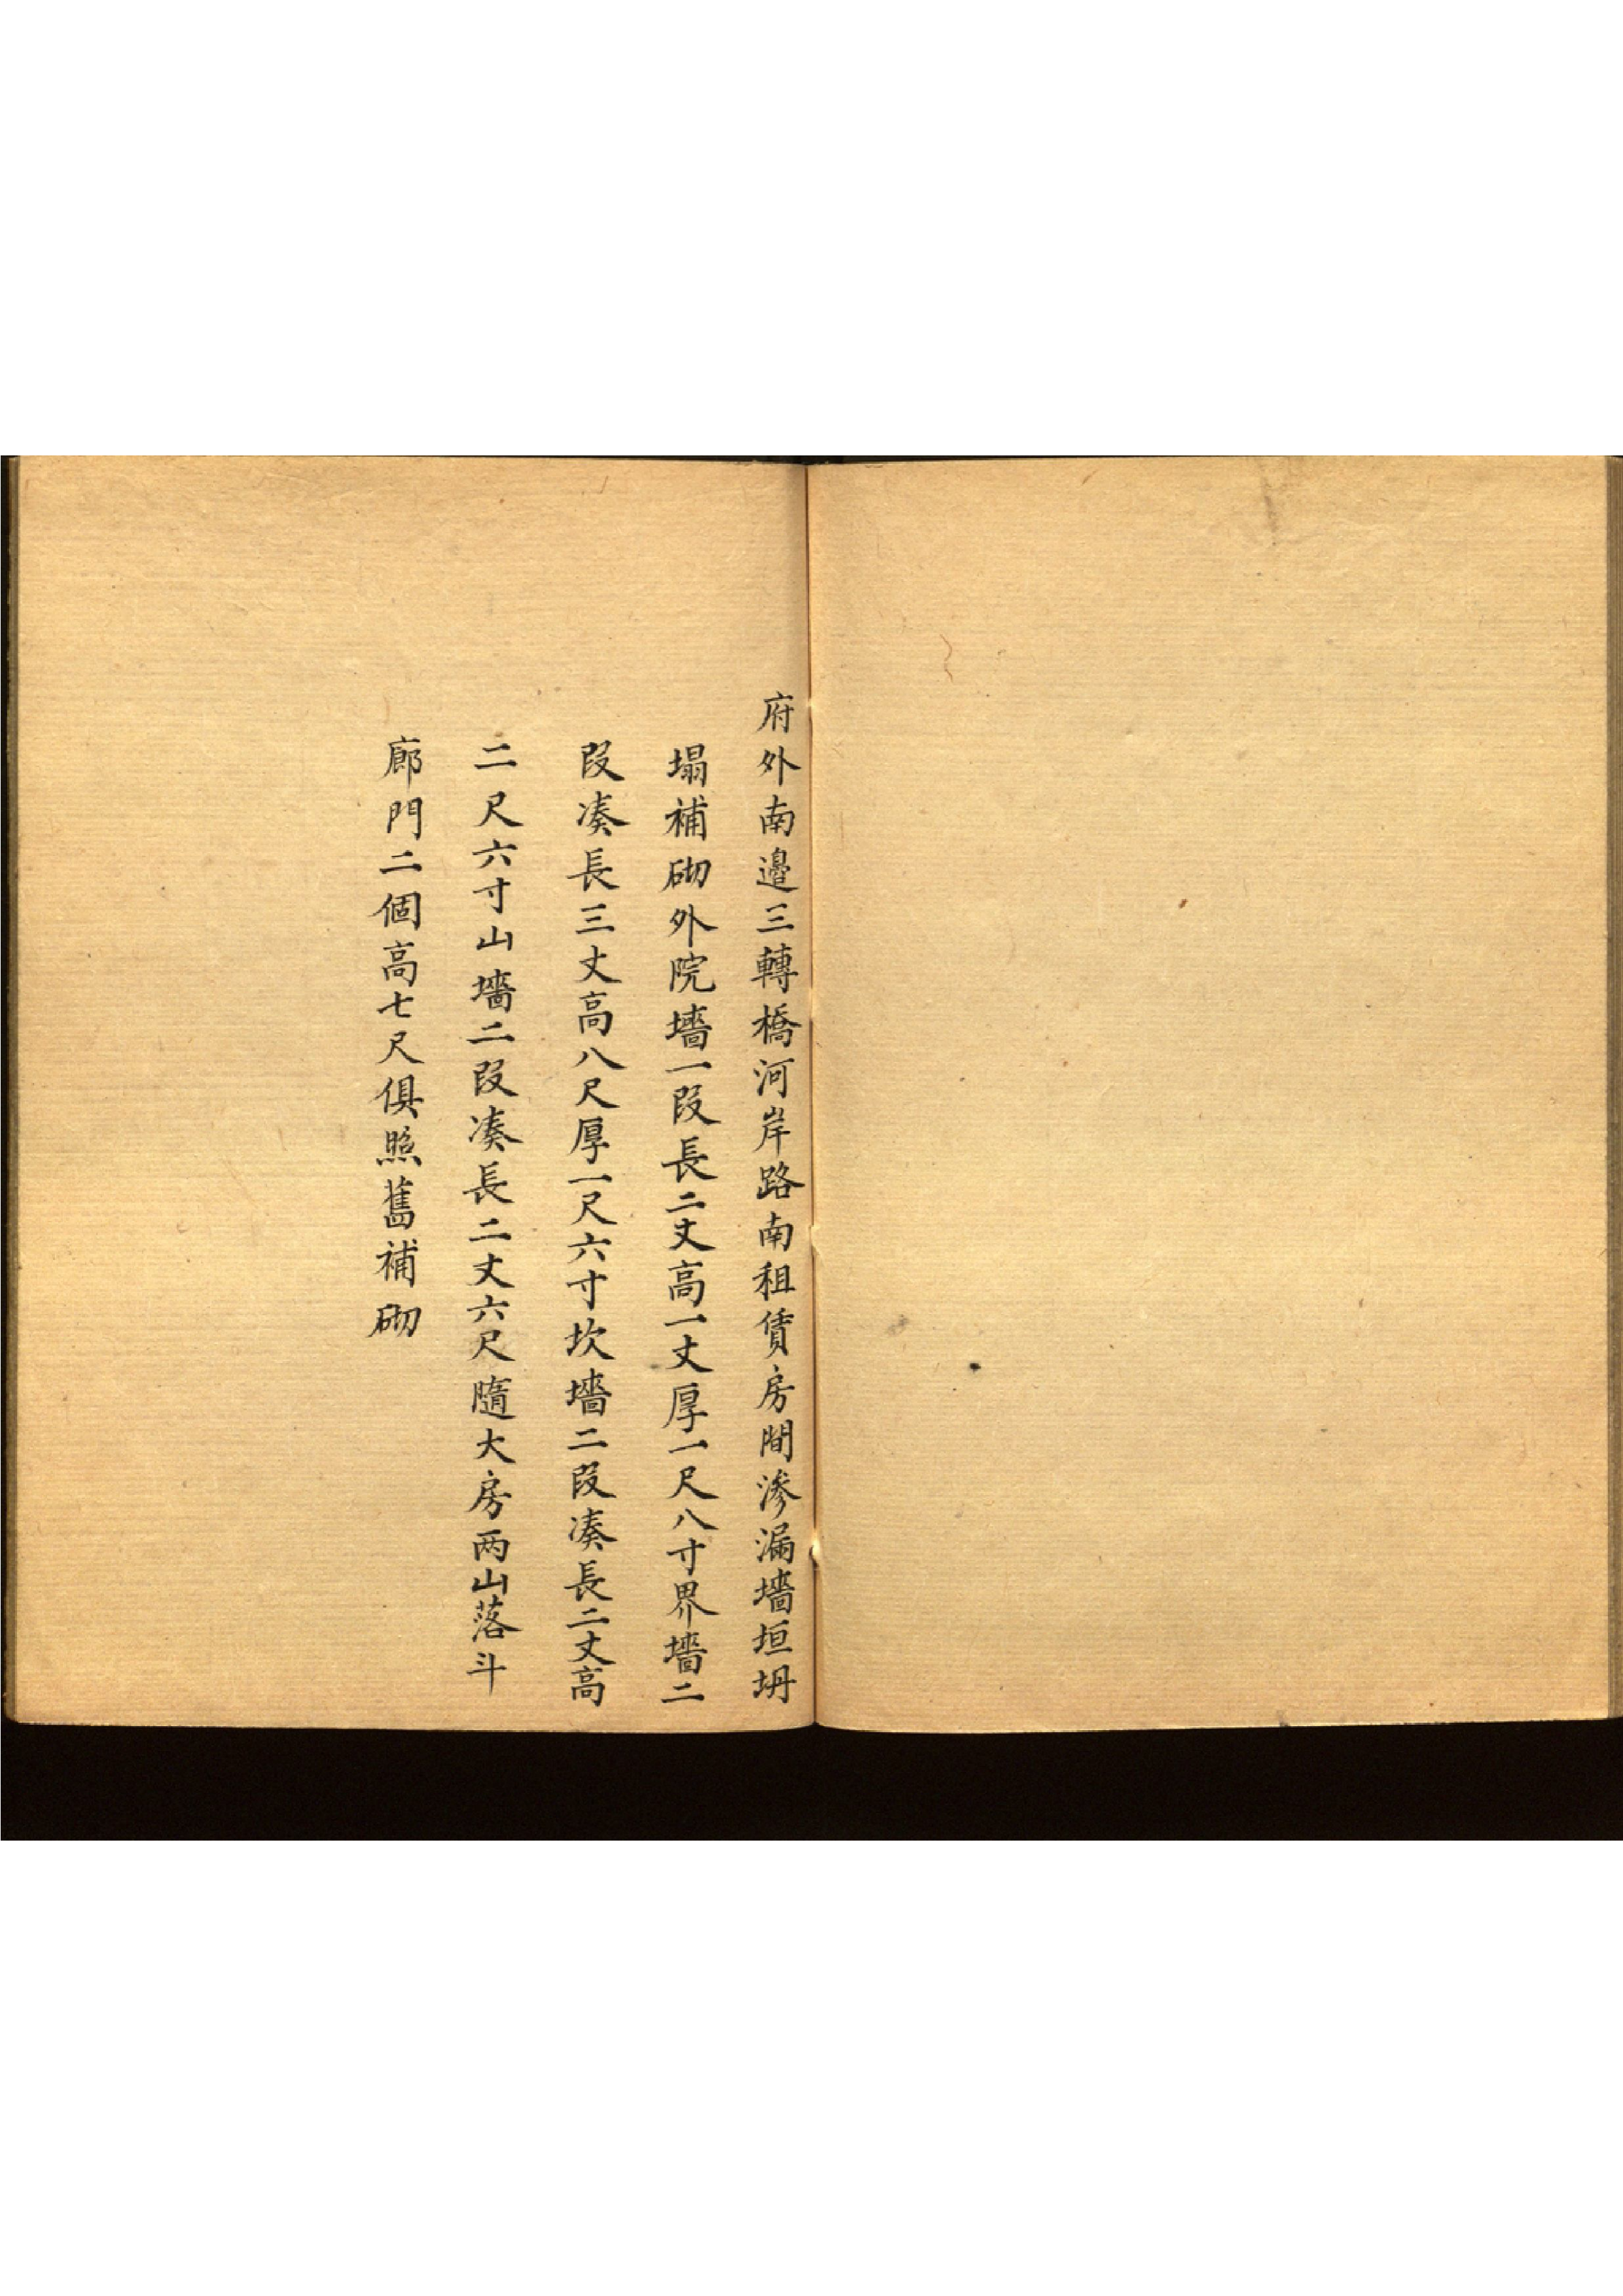 府外南邉三轉橋河岸路南租賃房間滲漏墻垣坍
塌補砌外院墻一段長二丈高一丈厚一尺八寸界墻二
段凑長三丈高八尺厚一尺六寸坎墻二段凑長二丈高
二尺六寸山墻二段凑長二丈六尺隨大房两山落斗
廊門二個高七尺俱照舊補砌